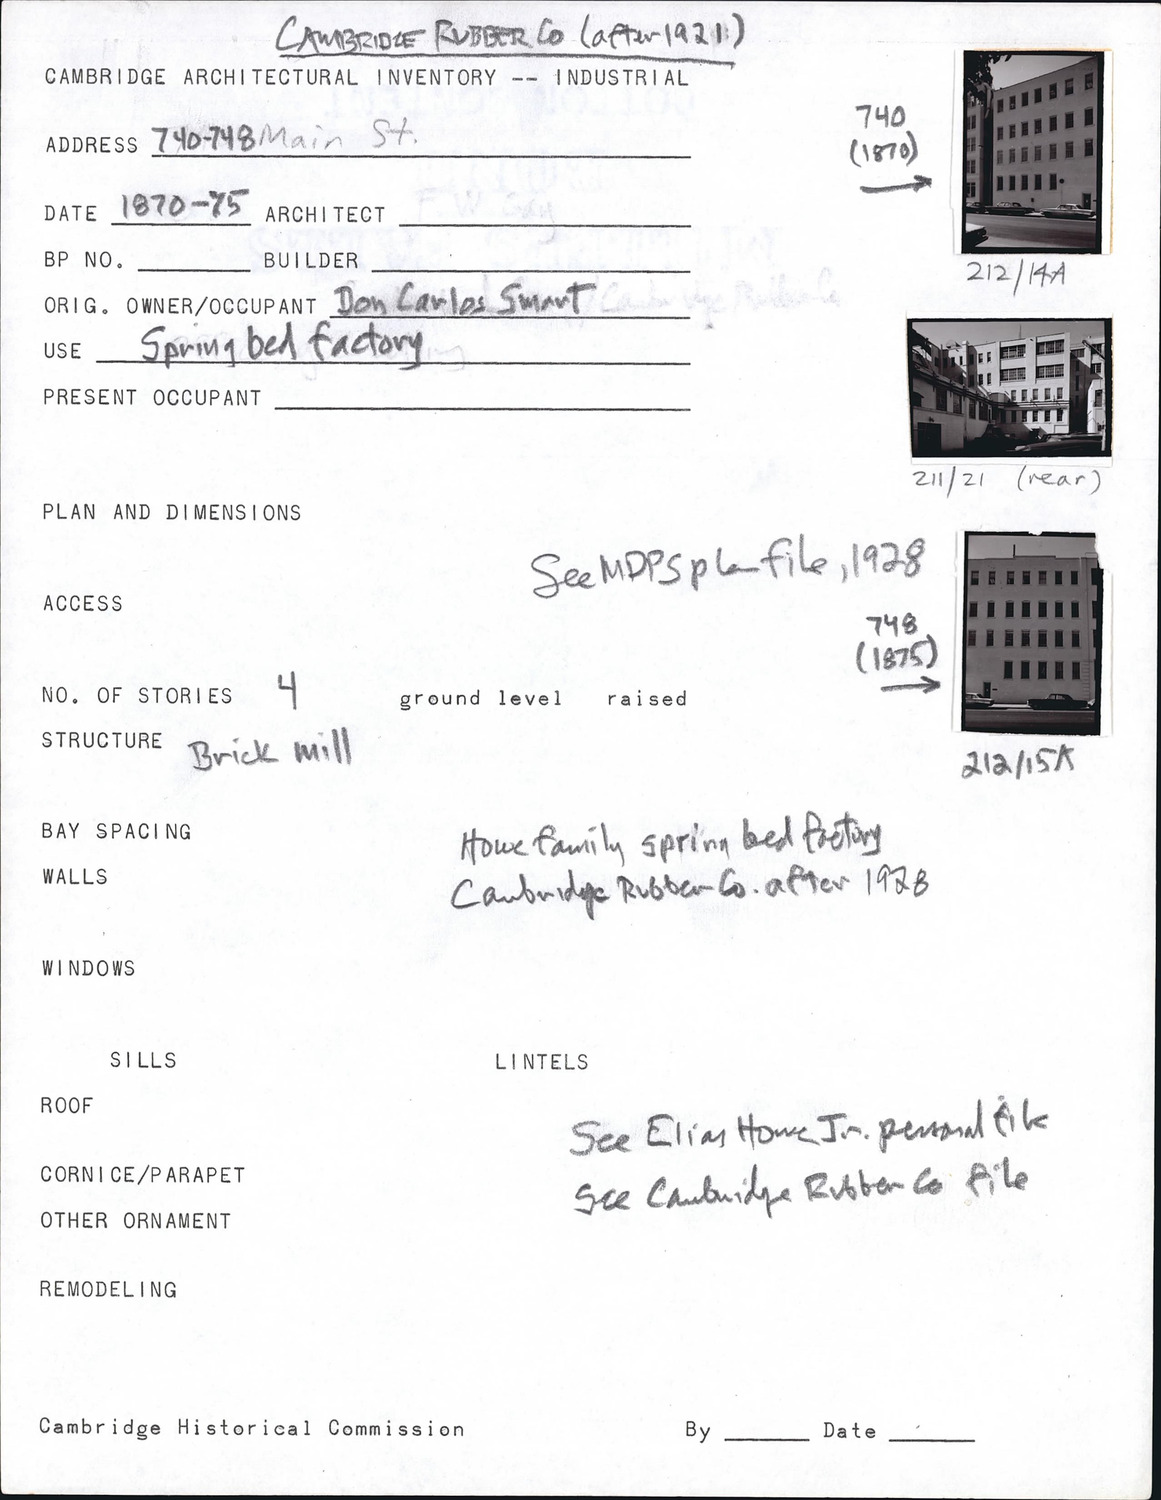 CAMBRIDGE RUBBER CO (after 1921)
CAMBRIDGE ARCHITECTURAL INVENTORY -- INDUSTRIAL
ADDRESS 740-748 Main St.
740
(1870)
DATE 1870-75 ARCHITECT
BP NO. BUILDER
212/14A
ORIG. OWNER/OCCUPANT Don Carlos Smart
USE Spring bed factory
PRESENT OCCUPANT
211/21 (rear)
PLAN AND DIMENSIONS
See MDPS plan file, 1928
ACCESS
748
(1875)
NO. OF STORIES 4 ground level raised
STRUCTURE Brick mill
212/15A
BAY SPACING
Howe family spring bed factory
WALLS
Cambridge Rubber Co. after 1928
WINDOWS
SILLS LINTELS
ROOF
See Elias Howe Jr. personal file
CORNICE/PARAPET
See Cambridge Rubber Co file
OTHER ORNAMENT
REMODELING
Cambridge Historical Commission By Date